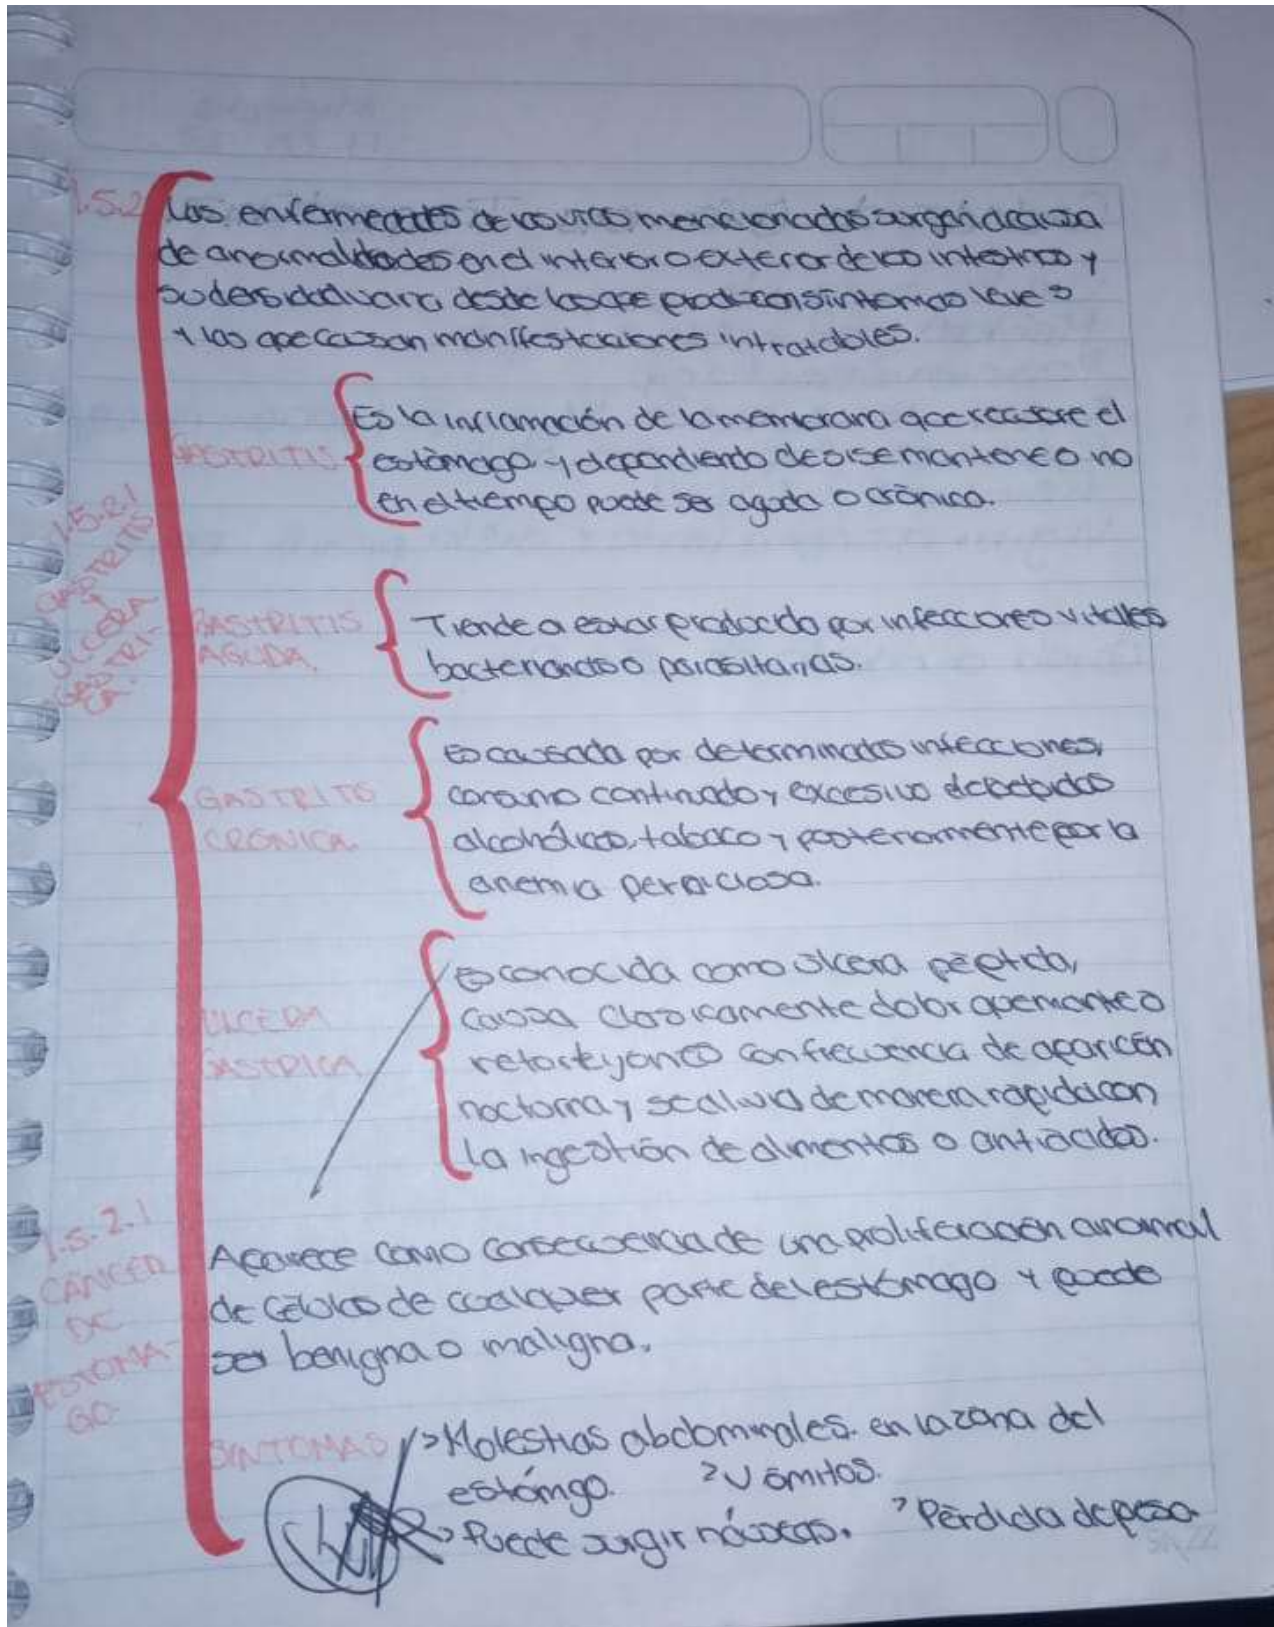 1.5.2
Las enfermedades de los mencionados surgen a causa
de anormalidades en el interior o exterior de los intestinos y
su varia desde las que producen síntomas leves
y las que causan manifestaciones intratables.
1.5.2.1
GASTRITIS
Y
ULCCERA
GESTRI-
CA.
GASTRITIS
Es la inflamación de la membrana que recubre el
estómago y dependiendo de si se mantiene o no
en el tiempo puede ser aguda o crónica.
GASTRITIS
AGUDA.
Tiende a estar producido por infecciones vitales
bacterianas o parasitarias.
GASTRITIS
CRÓNICA
Es causada por determinadas infecciones,
consumo continuado y excesivo de bebidas
alcohólicas, tabaco y posteriormente por la
anemia perniciosa.
ULCERA
GASTRICA
Es conocida como úlcera péptida,
causa clasicamente dolor quemante o
retorteyones con frecuencia de aparición
nocturna y se alivia de manera rapida con
la ingestión de alimentos o antiacidos.
1.5.2.1
CÁNCER
DE
ESTOMA-
GO-
Aparece como consecuencia de una proliferación anormal
de células de cualquier parte del estómago y puede
ser benigna o maligna.
SINTOMAS
> Molestias abdominales. en la zona del
estómgo. > Vómitos.
> Puede surgir náuseas. > Pérdida de peso.